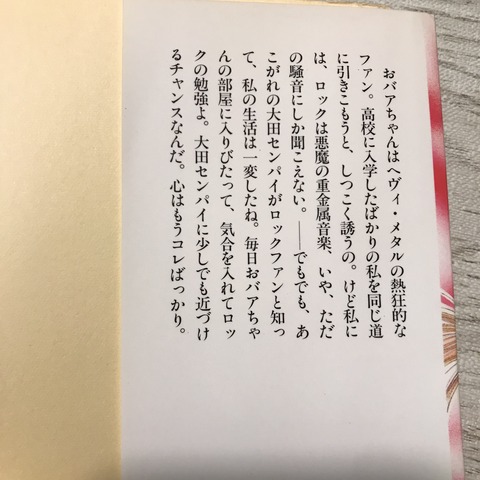 おバアちゃんはヘヴィ・メタルの熱狂的な
ファン。高校に入学したばかりの私を同じ道
に引きこもうと、しつこく誘うの。けど私に
は、ロックは悪魔の重金属音楽、いや、ただ
の騒音にしか聞こえない。――でもでも、あ
こがれの大田センパイがロックファンと知っ
て、私の生活は一変したね。毎日おバアちゃ
んの部屋に入りびたって、気合を入れてロッ
クの勉強よ。大田センパイに少しでも近づけ
るチャンスなんだ。心はもうコレばっかり。